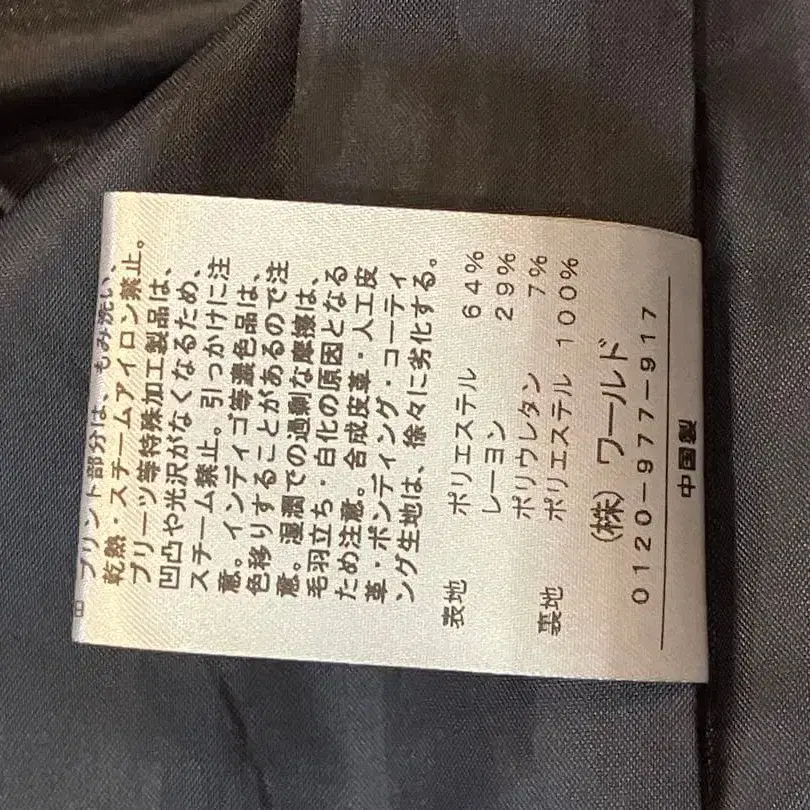 プリント部分は、もみ洗い、
乾熱・スチームアイロン禁止。
プリーツ等特殊加工製品は、
凹凸や光沢がなくなるため、
スチーム禁止。引っかけに注
意。インディゴ等濃色品は、
色移りすることがあるので注
意。湿潤での過剰な摩擦は、
毛羽立ち・白化の原因となる
ため注意。合成皮革・人工皮
革・ボンディング・コーティ
ング生地は、徐々に劣化する。
表地 ポリエステル 64%
レーヨン 29%
ポリウレタン 7%
裏地 ポリエステル 100%
(株)ワールド
0120-977-917
中国製